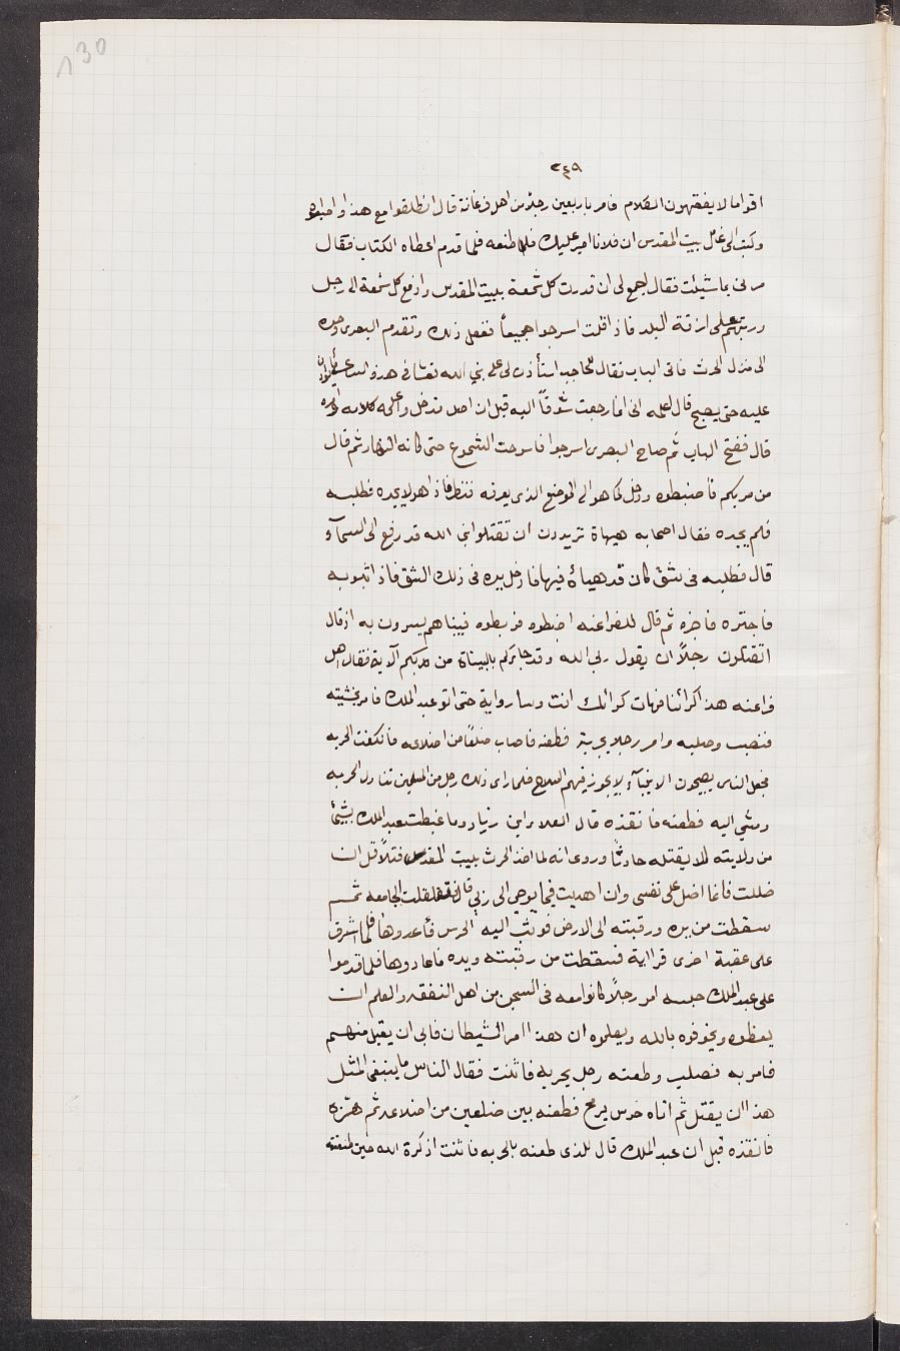 130
٢٤٩
اقواما لا يفقهون الكلام فامر باربعين رجلا من اهل فرغانة قال انطلقوا مع هذا
وكتب الى عامل بيت المقدس ان فلانا امير عليك فلما قدم اعطاه الكتاب فقال
مرنى بما شيئت فقال اجمع لى ان قدرت كل شمعة ببيت المقدس وادفع كل شمعة الى رجل
ورتبهم على ازقة البلد فاذا قلت اسرجوا جميعاً ففعل ذلك وتقدم البصرى وحده
الى منزل الحرث فاتى الباب فقال للحاجب استأذن لى على نبي الله فقال فى هذه الساعة
عليه حتى يصبح قال اعلمه انى انما رجعت شوقاً اليه قبل ان اصل فدخل واعلمه كلامه
قال ففتح الباب ثم صاح البصرى اسرجوا فاسرجت الشموع حتى كانه النهار ثم قال
من مر بكم فاضبطوه ودخل كما هو الى الموضع الذى يعرفه فنظر فاذا هو لا يجده فطلبه
فلم يجده فقال اصحابه هيهاة تريدون ان تقتلوا نبى الله قد رفع الى السمآء
قال فطلبه فى شق كان قد هيأه فيها فادخل يده فى ذلك الشق فاذا بثوبه
فاجتره فاخرجه ثم قال للفراغنه اضبطوه فربطوه فبيناهم يسيرون به اذ قال
اتقتلون رجلاً ان يقول ربى الله وقد جاءكم بالبيناة من ربكم الآية فقال اهل
فراغنه هذا كراننا فهات كرانك انت وساروا به حتى اتو عبد الملك فامر بخشبة
فنصبت وصلبه وامر رجلا بحربة فطعنه فاصاب ضلعًا من اضلاعه فانكفت الحربه
فجعل الناس يصيحون الانبيآء لا يجوز فيهم السلاح فلما راى ذلك رجل من المسلمين تناول الحربه
ومشى اليه فطعنه فانقذه قال العلا وابن زياد وما غبطت عبد الملك بشيئ
من ولايته الا بقتله حارثا وروى انه لما اخذ الحرث ببيت المقدس فتلا قل ان
ضللت فانما اضل على نفسى وان اهديت فيما يوحى الى ربي الجامعه ثم
سقطت من يده ورقبته الى الارض فوثب اليه الحرس فأعدوها فلما اشرق
على عقبة اخرى قرا اية فسقطت من رقبته ويده فاعادوها فلما قدموا
على عبد الملك حبسه امر رجلاً كانوا معه فى السجن من اهل الفقه والعلم ان
يعظوه ويخوفوه بالله ويعلموه ان هذا امر الشيطان فابى ان يقبل منهم
فامر به فصلب وطعنه رجل بحربه فانثنت فقال الناس ما ينبغى لمثل
هذا ان يقتل ثم اتاه حرس برمح فطعنه بين ضلعين من اضلاعه ثم هزه
فانقذه قيل ان عبد الملك قال للذى طعنه بالحربه فانثنت اذكرة الله حين طعنته